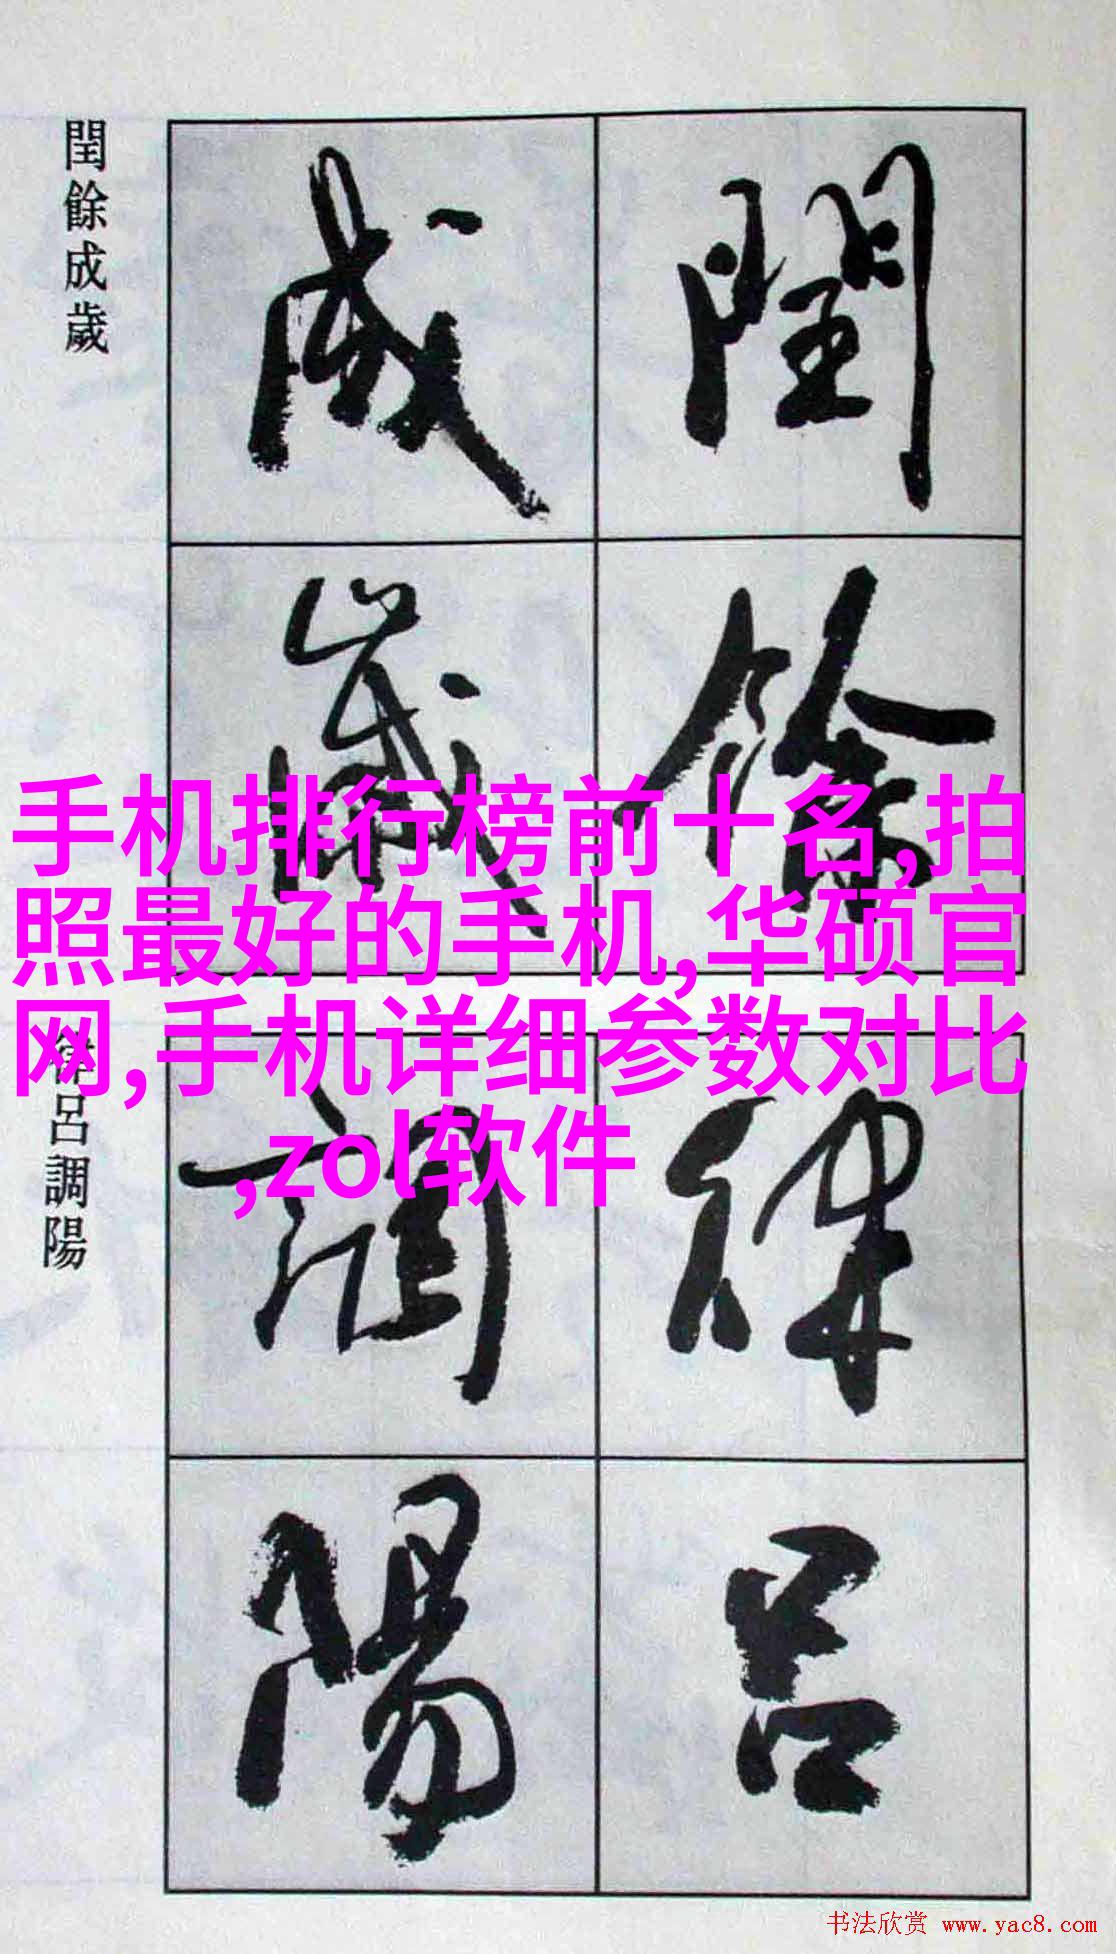 閏餘成歲
閏餘
成歲
手机排行榜前十名,拍
照最好的手机,华硕官
网,手机详细参数对比
,zol软件
律呂調陽
律呂
調陽
书法欣赏 www.yac8.com